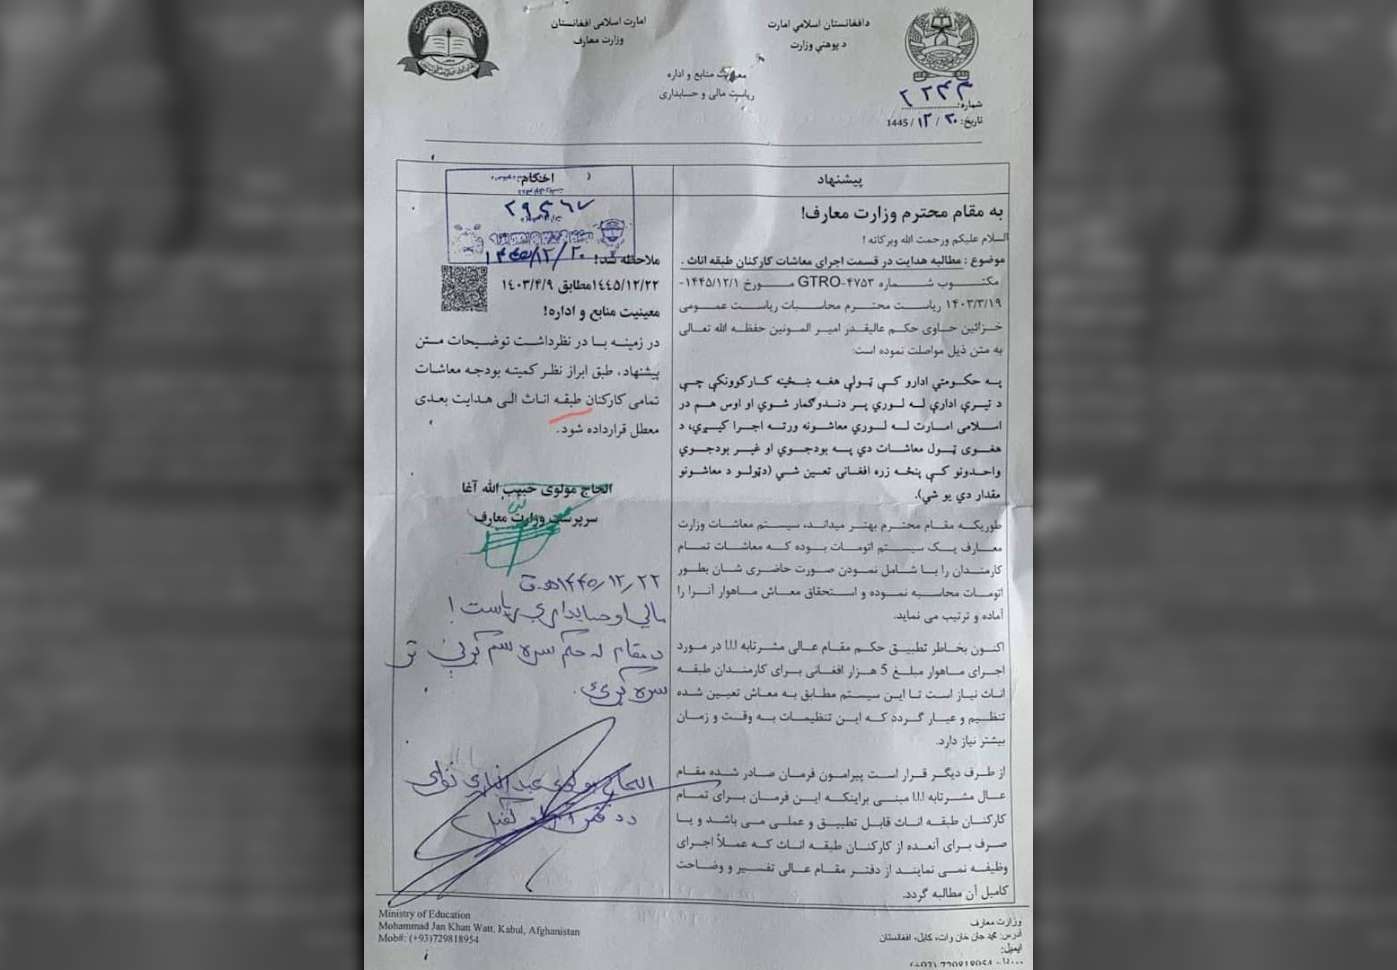 د افغانستان اسلامي امارت
د پوهنې وزارت
امارت اسلامی افغانستان
وزارت معارف
معینیت منابع و اداره
ریاست مالی و حسابداری
شماره: ۲۲۴۳
تاریخ: ۲۰ / ۱۲ / 1445
پیشنهاد
به مقام محترم وزارت معارف!
السلام علیکم ورحمت الله وبرکاته !
موضوع : مطالبه هدایت در قسمت اجرای معاشات کارکنان طبقه اناث .
مکتوب شماره GTRO-۴۷۵۳ مورخ ۱۴۴۵/۱۲/۱-
۱۴۰۳/۳/۱۹ ریاست محترم محاسبات ریاست عمومی
خزائین حاوی حکم عالیقدر امیر المونین حفظه الله تعالی
به متن ذیل مواصلت نموده است:
په حکومتي ادارو کې ټولې هغه ښځینه کارکوونکې چې
د تیرې ادارې له لوري پر دندو ګمار شوي او اوس هم در
اسلامی امارت له لوري معاشونه ورته اجرا کیږي، د
هغوی ټول معاشات دي په بودجوي او غیر بودجوي
واحدونو کې پنځه زره افغانی تعین شي (دټولو د معاشونو
مقدار دي یو شي).
طوریکه مقام محترم بهتر میداند، سیستم معاشات وزارت
معارف یک سیستم اتومات بوده که معاشات تمام
کارمندان را با شامل نمودن صورت حاضری شان بطور
اتومات محاسبه نموده و استحقاق معاش ماهوار آنرا را
آماده و ترتیب می نماید.
اکنون بخاطر تطبیق حکم مقام عالی مشرتابه ا.ا.ا در مورد
اجرای ماهوار مبلغ 5 هزار افغانی برای کارمندان طبقه
اناث نیاز است تا این سیستم مطابق به معاش تعیین شده
تنظیم و عیار گردد که این تنظیمات به وقت و زمان
بیشتر نیاز دارد.
از طرف دیگر قرار است پیرامون فرمان صادر شده مقام
عال مشرتابه ا.ا.ا مبنی براینکه این فرمان برای تمام
کارکنان طبقه اناث قابل تطبیق و عملی می باشد و یا
صرف برای آنعده از کارکنان طبقه اناث که عملاً اجرای
وظیفه نمی نمایند از دفتر مقام عالی تفسیر و وضاحت
کامیل آن مطالبه گردد.
احکام
۲۹۵۶۷
۱۴۴۵/۱۲/۲۰
ملاحظه شد!
۱۴۴۵/۱۲/۲۲مطابق ۱۴۰۳/۴/۹
معینیت منابع و اداره!
در زمینه با در نظرداشت توضیحات متن
پیشنهاد، طبق ابراز نظر کمیته بودجه معاشات
تمامی کارکنان طبقه اناث الی هدایت بعدی
معطل قرارداده شود.
الحاج مولوی حبیب الله آغا
سرپرست وزارت معارف
۱۴۴۵/۱۲/۲۲هـ ق
مالي او حسابداري ریاست !
د مقام له حکم سره سم کړنې تر
سره کړئ.
Ministry of Education
Mohammad Jan Khan Watt, Kabul, Afghanistan
Mob#: (+93)729818954
وزارت معارف
آدرس: محمد جان خان وات، کابل، افغانستان
ایمیل: